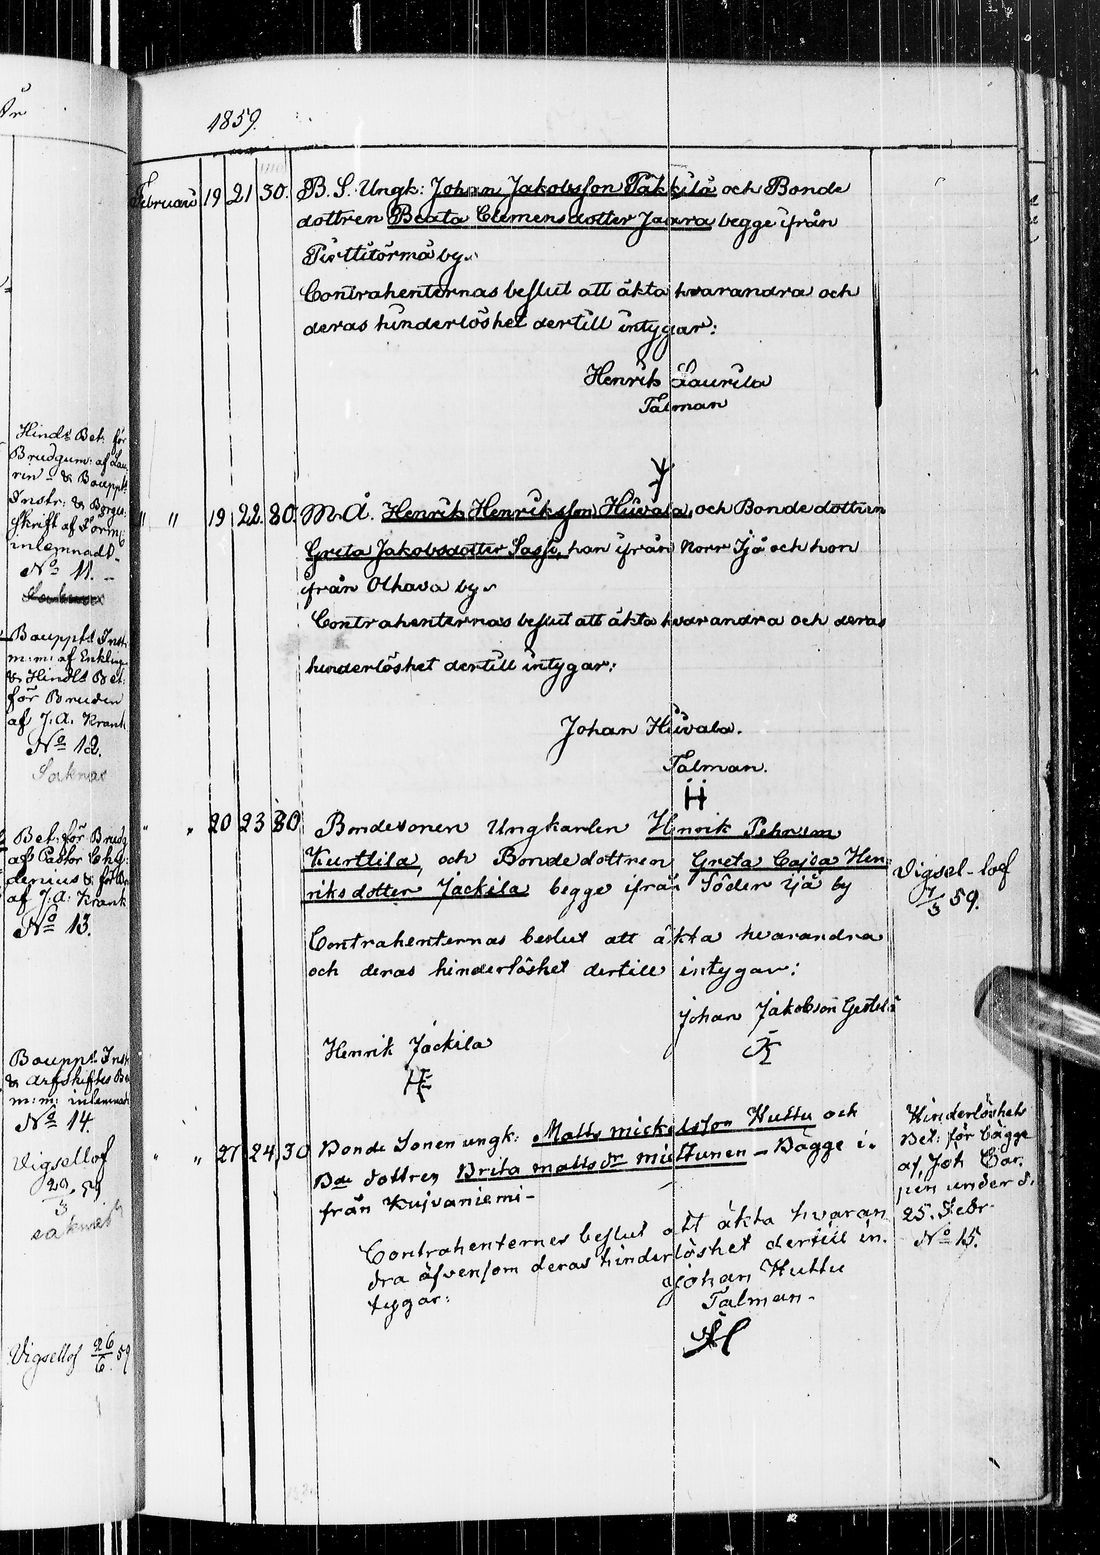 År
Hinds Bet: för
Brudgum: af Lau
rin - & Bouppt:
Instr: & Borgen
skrift af Form:
inlemnadt.
No 11. -
Bouppts Instr
m: m: af Enkling
& Hindls Bet:
för Bruden
af J. A. Krank
No 12.
Saknas
Bet: för Brudg
af Pastor Chy
denius & för Br
af J. A. Krank
No 13.
Bouppt Instr
& Arfskiftes Be
m: m: inlemnadt
No 14.
Vigsellof
29/3 59
saknas
Vigsellof 26/6 59
1859.
Februari 19 21 30. B. S. Ungk: Johan Jakobsson Täkkilä och Bonde
dottren Beata Clemensdotter Jaara begge ifrån
Pirttitörmä by.
Contrahenternas beslut att äkta hvarandra och
deras hinderlöshet dertill intygar:
Henrik Laurila
Talman
" " 19 22. 80. M. Å. Henrik Henriksson Hiivala, och Bondedottren
Greta Jakobsdotter Sassi, han ifrån Norr Ijå och hon
från Olhava by.
Contrahenternas beslut att äkta hvarandra och deras
hinderlöshet dertill intygar:
Johan Hiivala.
Talman.
H
" " 20 23 30 Bondesonen Ungkarlen Henrik Pehrsson
Kurttila, och Bondedottren Greta Cajsa Hen
riksdotter Jäckilä begge ifrån Söder Ijå by
Contrahenternas beslut att äkta hvarandra
och deras hinderlöshet dertill intygar:
Johan Jakobson
Henrik Jäckilä
Vigsel-lof
7/3 59.
" " 27 24 30 Bonde Sonen ungk: Matts Mickelsson Huttu och
Bde dottren Brita Matts dr Miettunen - Bägge i.
från Kuivaniemi -
Contrahenternes beslut att äkta hvaran
dra äfvensom deras hinderlöshet dertill in.
tygar:
Johan Huttu
Talman -
Hinderlöshets
Bet: för bägge
af Joh Car
pen under d.
25. Febr.
No 15.